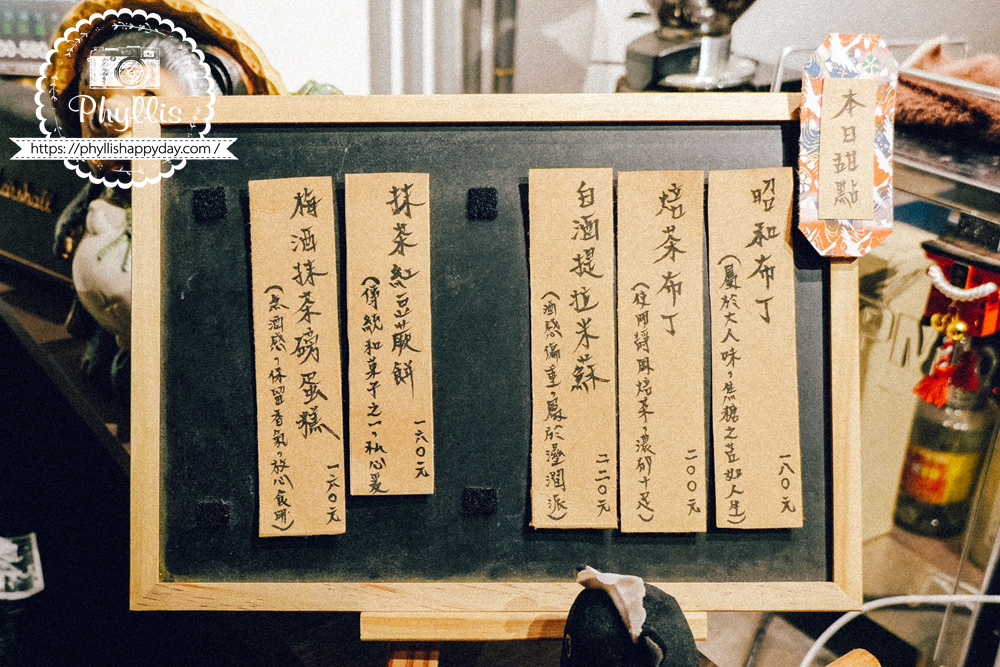 本日甜點
昭和布丁
(屬於大人味，焦糖之苦如人生)
一八〇元
焙茶布丁
(使用靜岡焙茶，濃郁十足)
二〇〇元
白酒提拉米蘇
(酒感偏重，屬於溼潤派)
二二〇元
抹茶紅豆蕨餅
(傳統和菓子之一，私心愛
一六〇元
梅酒抹茶磅蛋糕
(無酒感，保留香氣，放心食用)
一六〇元
Phyllis
https://phyllishappyday.com/